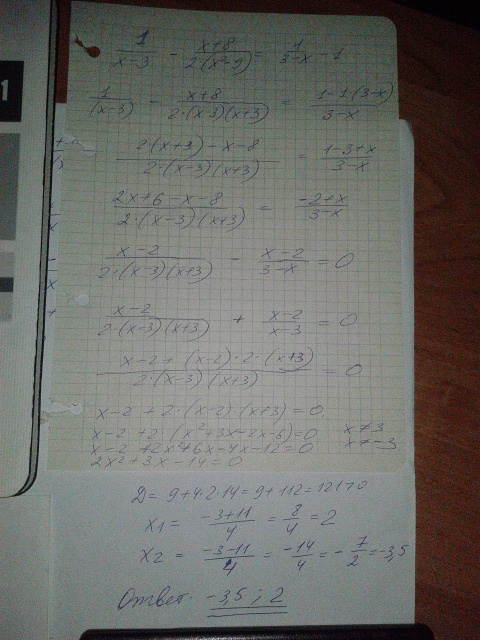 1/(x-3) - (x+8)/(2(x²-9)) = 1/(3-x) - 1
1/(x-3) - (x+8)/(2·(x-3)(x+3)) = (1-1·(3-x))/(3-x)
(2·(x+3)-x-8)/(2·(x-3)(x+3)) = (1-3+x)/(3-x)
(2x+6-x-8)/(2·(x-3)(x+3)) = (-2+x)/(3-x)
(x-2)/(2·(x-3)(x+3)) - (x-2)/(3-x) = 0
(x-2)/(2·(x-3)(x+3)) + (x-2)/(x-3) = 0
(x-2+(x-2)·2·(x+3))/(2·(x-3)(x+3)) = 0
x-2+2·(x-2)·(x+3)=0
x-2+2·(x²+3x-2x-6)=0 x≠3
x-2+2x²+6x-4x-12=0 x≠-3
2x²+3x-14=0
D=9+4·2·14=9+112=121>0
x1 = (-3+11)/4 = 8/4 = 2
x2 = (-3-11)/4 = -14/4 = -7/2 = -3,5
Ответ: -3,5; 2
1